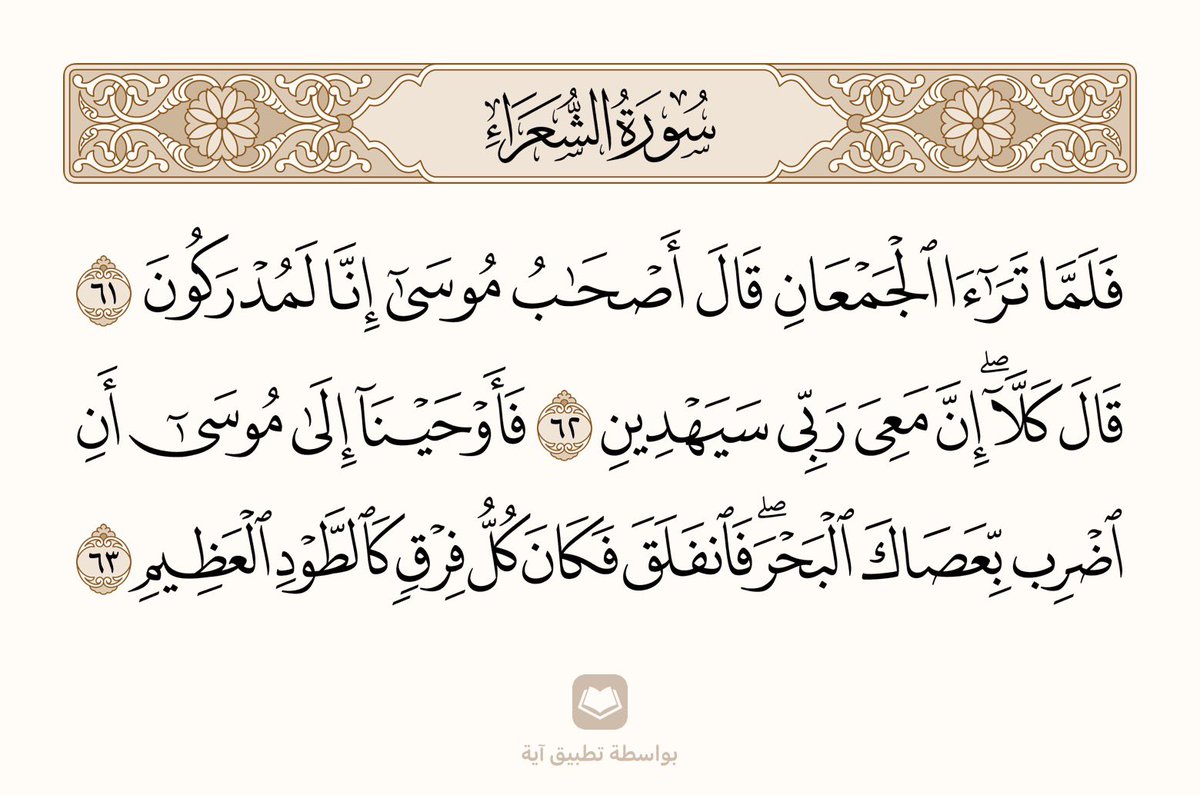 سُورَةُ الشُّعَرَاءِ
فَلَمَّا تَرَٰٓءَا ٱلْجَمْعَانِ قَالَ أَصْحَٰبُ مُوسَىٰٓ إِنَّا لَمُدْرَكُونَ ٦١
قَالَ كَلَّآ ۖ إِنَّ مَعِىَ رَبِّى سَيَهْدِينِ ٦٢ فَأَوْحَيْنَآ إِلَىٰ مُوسَىٰٓ أَنِ
ٱضْرِب بِّعَصَاكَ ٱلْبَحْرَ ۖ فَٱنفَلَقَ فَكَانَ كُلُّ فِرْقٍ كَٱلطَّوْدِ ٱلْعَظِيمِ ٦٣
بواسطة تطبيق آية